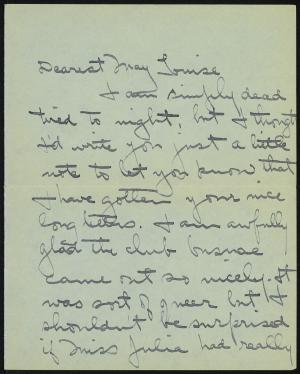 Dearest May Louise
I am simply dead
tired to night, but I thougt
I'd write you just a little
note to let you know that
I have gotten your nice
long letters. I am awfully
glad the club
came out so nicely. It
was sort of queer but I
shouldn't be surprised
if Miss Julia had really